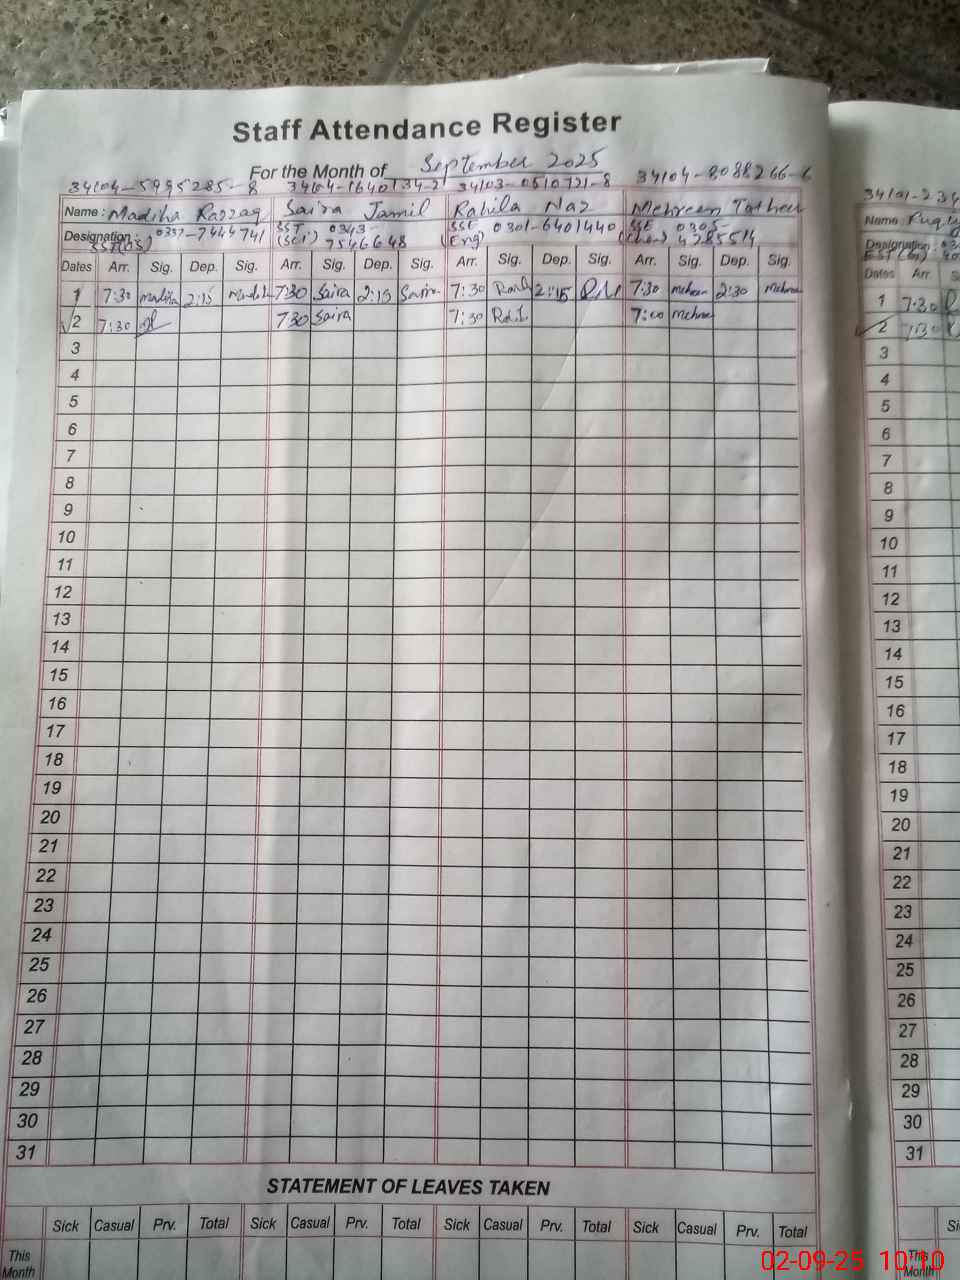 Staff Attendance Register
For the Month of September 2025
34104-5995285-8 34104-1640134-2 34103-0510721-8 34104-8088266-6
Name : Madiha Razzaq Saira Jamil Rahila Naz Mehreen
Designation : SST(CS) 0337-7444741 SST (Sci) 0343-7546648 SSE (Eng) 0301-6401440 SSE 0303-4785514
Dates Arr. Sig. Dep. Sig. Arr. Sig. Dep. Sig. Arr. Sig. Dep. Sig. Arr. Sig. Dep. Sig.
1 7:30 Madiha 2:15 Madiha 7:30 Saira 2:15 Saira 7:30 2:15 7:30 Mehreen 2:30 Mehreen
2 7:30 7:30 Saira 7:30 7:00 Mehreen
3
4
5
6
7
8
9
10
11
12
13
14
15
16
17
18
19
20
21
22
23
24
25
26
27
28
29
30
31
STATEMENT OF LEAVES TAKEN
Sick Casual Prv. Total Sick Casual Prv. Total Sick Casual Prv. Total Sick Casual Prv. Total
This Month
34101-234
Name :
Designation :
Dates Arr.
1 7:30
2 7:30
3
4
5
6
7
8
9
10
11
12
13
14
15
16
17
18
19
20
21
22
23
24
25
26
27
28
29
30
31
This Month
02-09-25 10:10